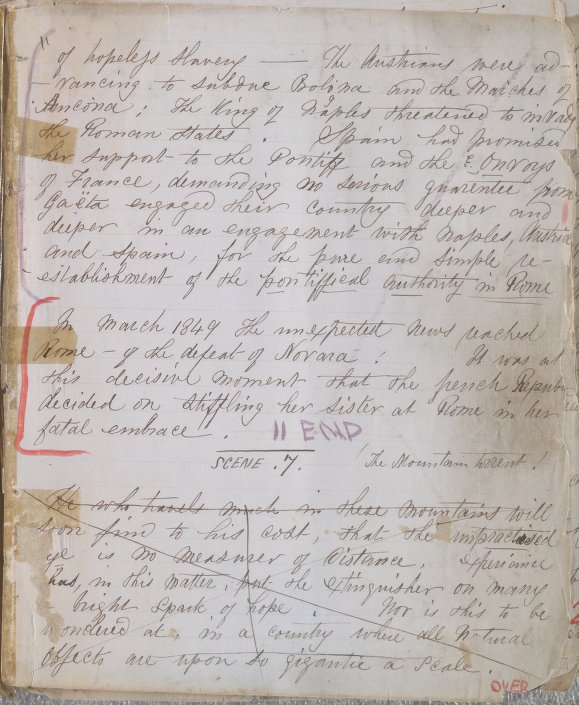 " of hopeless slavery — The Austrians were ad-
-vancing to subdue Bolona and the Marches of
Ancona; The King of Naples threatened to invade
the Roman States. Spain had promised
her support to the Pontiff and the Envoys
of France, demanding no serious guarentee from
Gaeta engaged their country deeper and
deeper in an engagement with Naples, Austria
and Spain, for the pure and simple re-
establishment of the pontifical authority in Rome
In March 1849 the unexpected news reached
Rome – of the defeat of Novara! It was at
this decisive moment that the french Repub-
decided on stiffling her sister at Rome in her
fatal embrace. " END
SCENE. 7. 'The Mountain torrent!
He who travels much in these mountains will
soon find to his cost, that the unpractised
eye is no measurer of distance. Experience
has, in this matter, put the extinguisher on many
a bright spark of hope. Nor is this to be
wondered at, in a country where all natural
objects are upon so gigantic a scale.
OVER